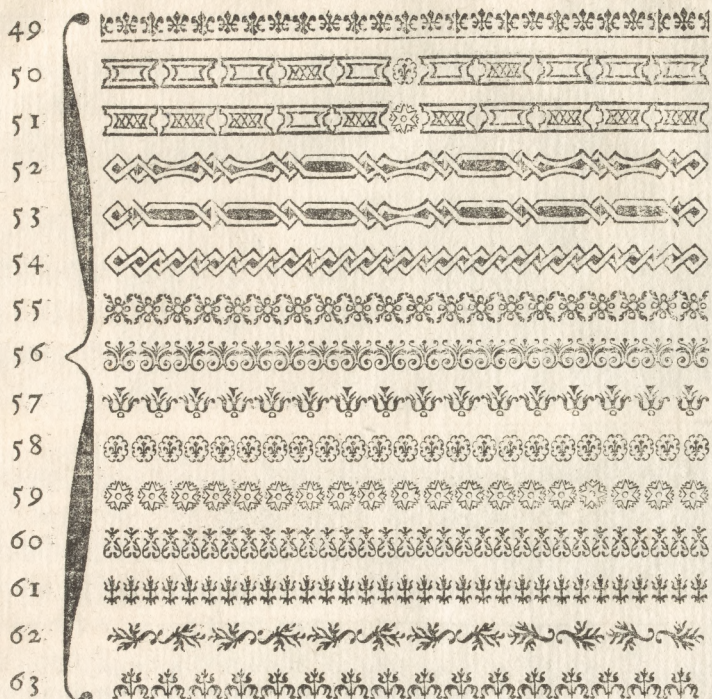 49
50
51
52
53
54
55
56
57
58
59
60
61
62
63